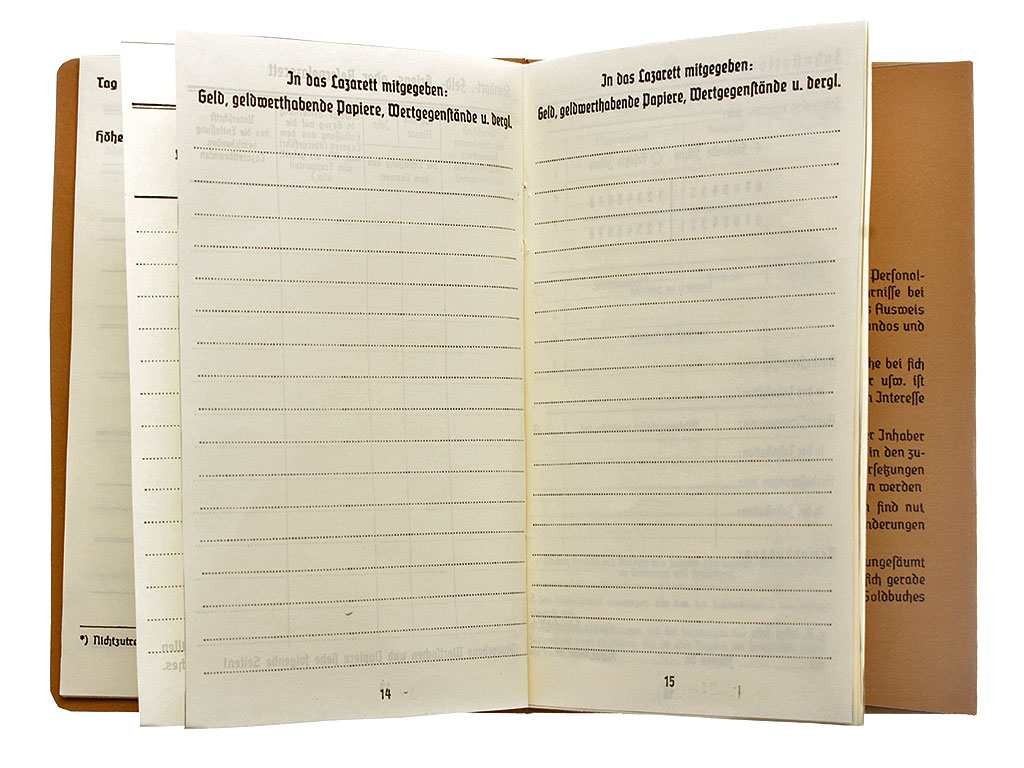 Tag
Höhe
*) Nichtzutre
In das Lazarett mitgegeben:
Geld, geldwerthabende Papiere, Wertgegenstände u. dergl.
14
In das Lazarett mitgegeben:
Geld, geldwerthabende Papiere, Wertgegenstände u. dergl.
15
Personal-
rnisse bei
s Ausweis
ndos und
he bei sich
r usw. ist
n Interesse
er Inhaber
in den zu-
rsetzungen
en werden
n sind nur
nderungen
ungesäumt
sich gerade
Soldbuches